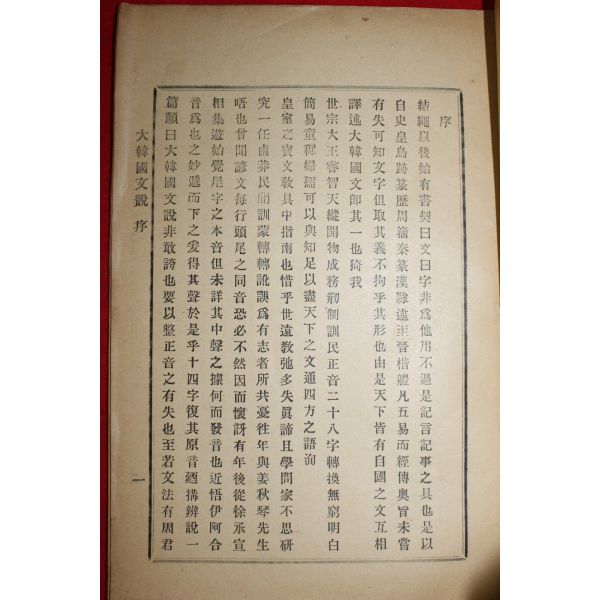 序
結繩以後始有書契曰文曰字非爲他用不過是記言記事之具也是以
自史皇鳥跡篆歷周籒秦篆漢隷遠至晉楷體凡五易而經傳奧旨未嘗
有失可知文字但取其義不拘乎其形也由是天下皆有自國之文互相
譯述大韓國文卽其一也猗我
世宗大王睿智天縱開物成務剏制訓民正音二十八字轉換無窮明白
簡易童穉婦孺可以與知足以盡天下之文通四方之語洵
皇室之寶文敎具中指南也惜乎世遠敎弛多失眞諦且學問家不思硏
究一任鹵莽民間訓蒙轉轉訛誤爲有志者所共憂徃年與姜秋琴先生
唔也曾聞諺文每行頭尾之同音恐必不然因而懷訝有年後從徐承宣
相集遊始覺尾字之本音但未詳其中聲之據何而發音也近悟伊阿合
音爲也之妙遞而下之爰得其聲於是乎十四字復其原音廼搆辨說一
篇顏曰大韓國文說非敢誇也要以整正音之有失也至若文法有周君
大韓國文說 序
一